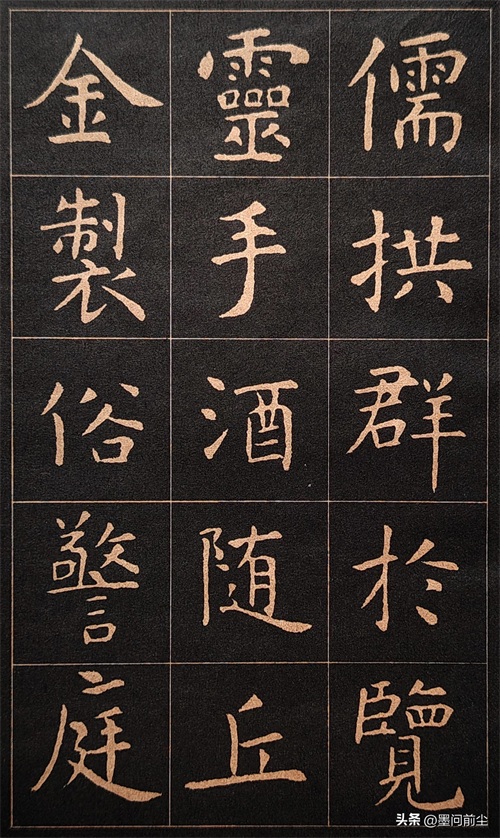 儒拱群於覽
靈手酒随丘
金製俗警庭
头条@墨问前尘